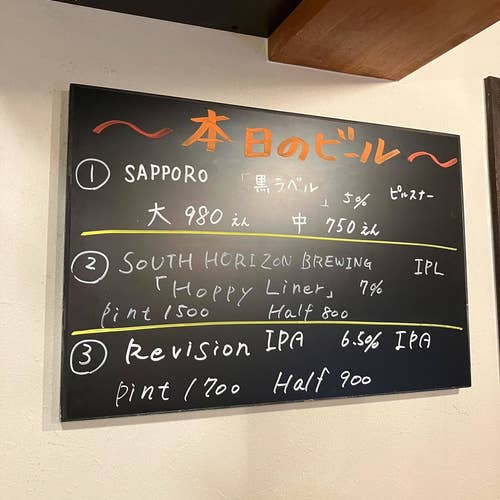 〜本日のビール〜
① SAPPORO 「黒ラベル」 5% ピルスナー
大 980えん 中 750えん
② SOUTH HORIZON BREWING IPL
「Hoppy Liner」 7%
pint 1500 Half 800
③ Revision IPA 6.50% IPA
pint 1700 Half 900